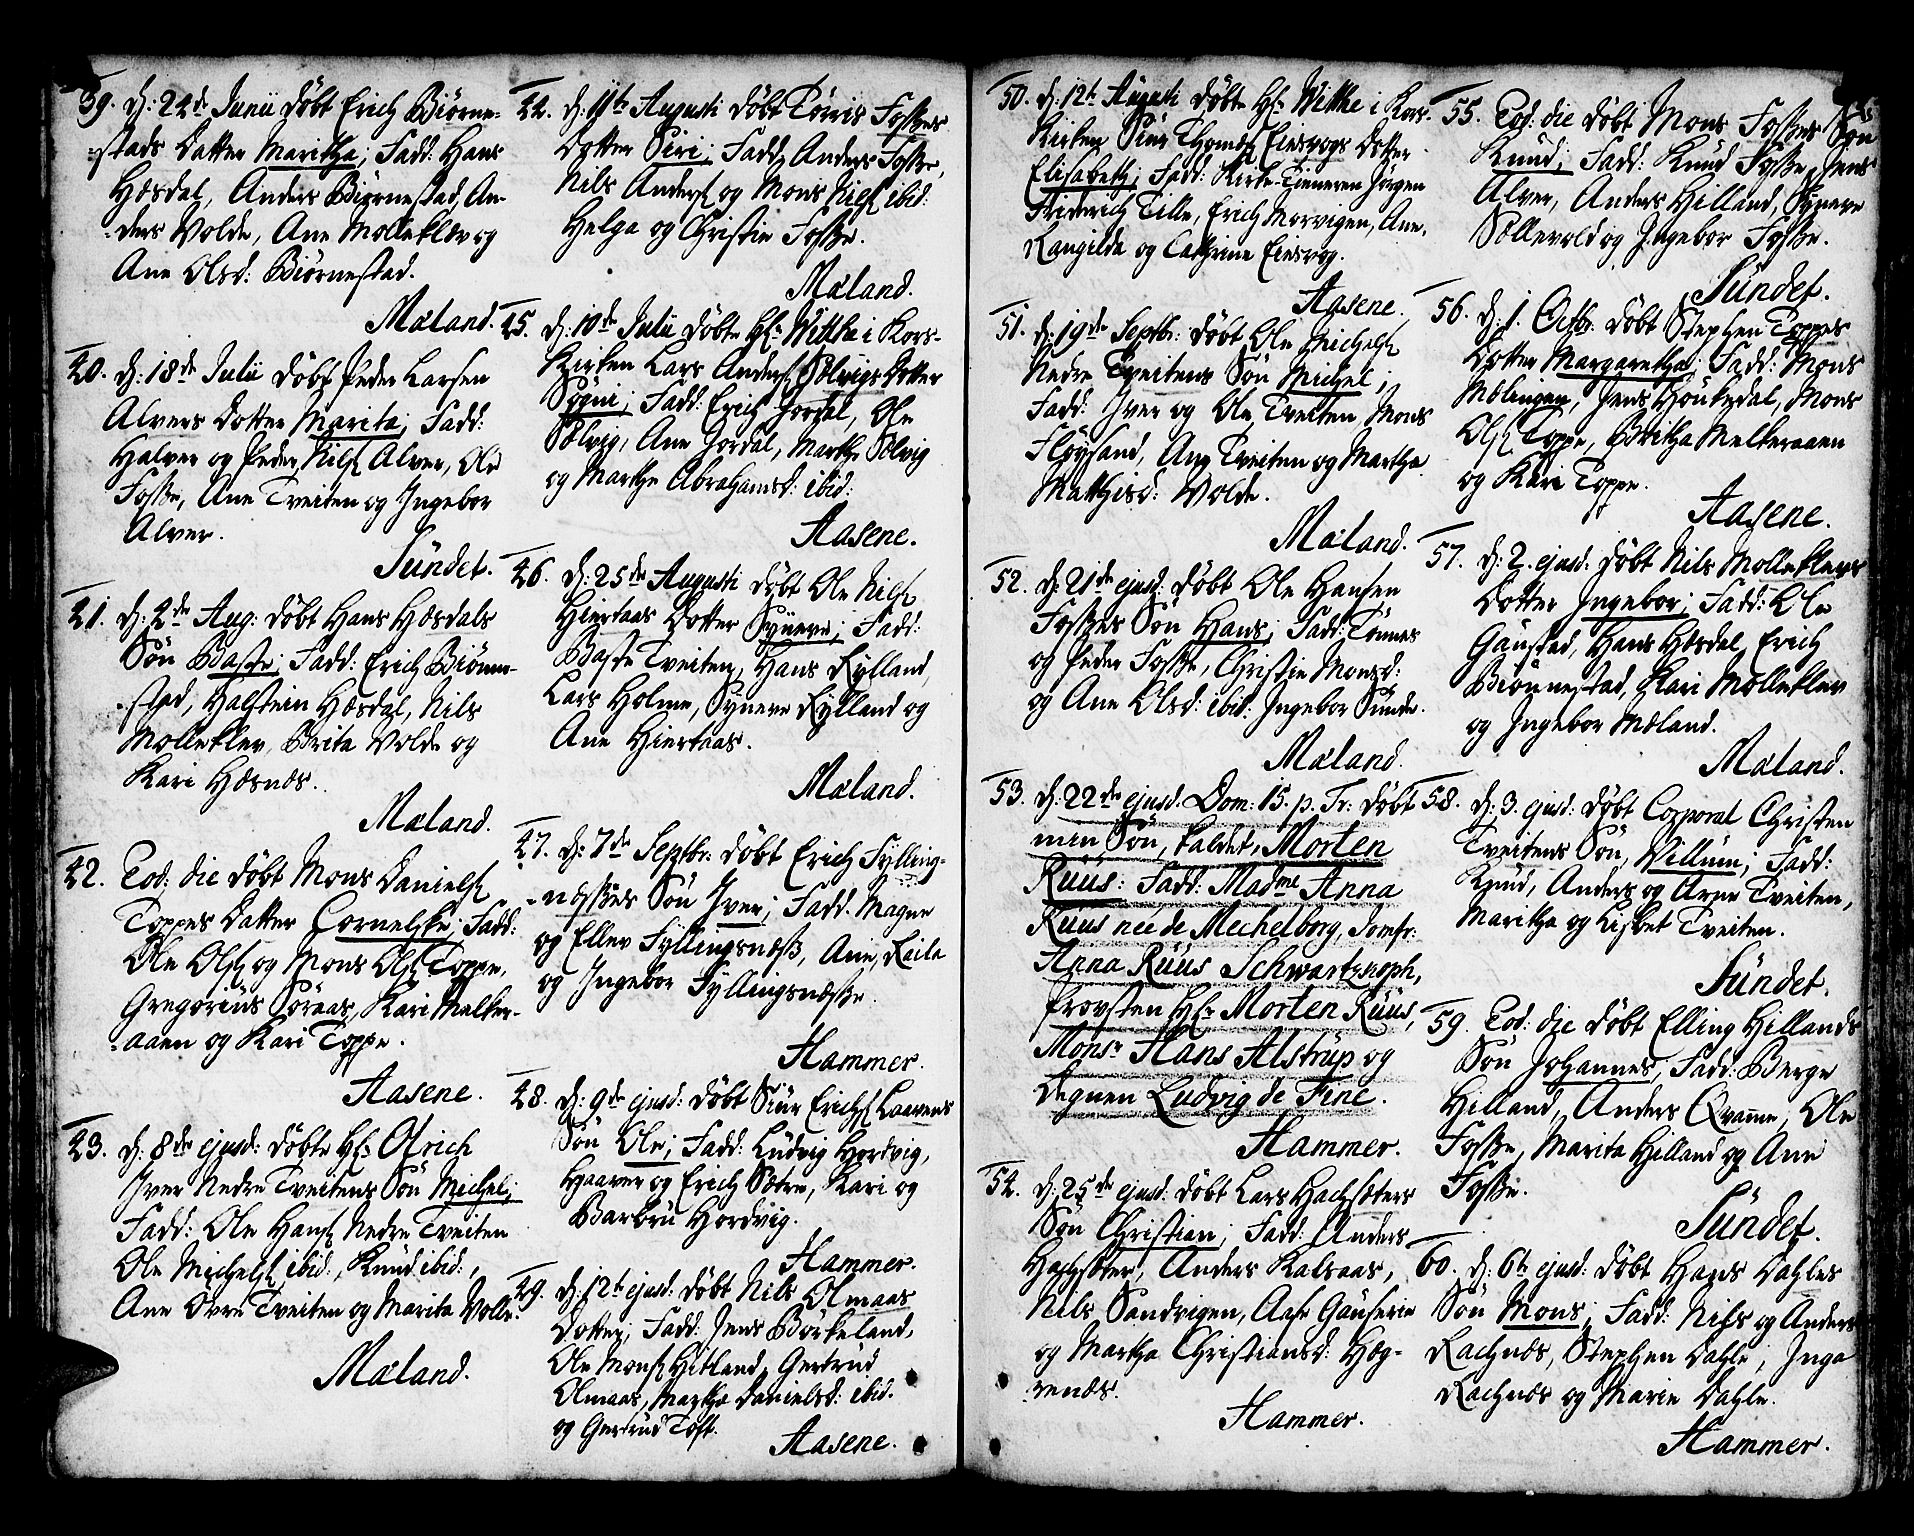 39. d: 24de Junii döbt Erich Biørne-
stads Datter Maritha; Fadd: Hans
Hæsdal, Anders Biørnestad, An-
-ders Volde, Ane Molleklev og
Ane Olsd: Biørnestad.
Mæland.
40. d: 18de Julii döbt Peder Larsen
Alvers Dotter Marita; Fadd:
Halver og Peder Nilss Alver, Ole
Fosse, Ane Tveiten og Ingebor
Alver.
Sündet.
41. d: 2de Aug: döbt Hans Hæsdals
Sön Basse; Fadd: Erich Biørne-
stad, Halstein Hæsdal, Nils
Molleklev, Brita Volde og
Kari Hæsnæs.
Mæland.
42. Eod: die döbt Mons Danielss
Toppes Datter Cornelske; Fadd:
Ole Olss og Mons Olss Toppe,
Gregorius Söraas, Kari Melker-
-aaen og Kari Toppe.
Aasene.
43. d: 8de ejusd: döbte Hr: Olrich
Iver Nedre Tveitens Sön Michel;
Fadd: Ole Hanss Nedre Tveiten
Ole Michelss ibid:, Knud ibid:,
Ane Övre Tveiten og Marita Volle.
Mæland.
44. d: 11te Augusti döbt Törris Fosses
Dotter Siri; Fadd: Anders Fosse,
Nils Anderss og Mons Nilss ibid:
Helga og Christie Fosse.
Mæland.
45. d: 10de Julii döbte Hr: Witthe i Kors-
Kirken Lars Anderss Sölvigs Dotter
Sögni; Fadd: Erich Jordal, Ole
Sölvig, Ane Jordal, Marthe Sölvig
og Marthe Abrahamsd: ibid:
Aasene.
46. d: 25de Augusti döbt Ole Nilss
Hiertaas Dotter Syneve; Fadd:
Basse Tveiten, Hans Rylland,
Lars Holme, Syneve Rylland og
Ane Hiertaas.
Mæland.
47. d: 7de Septbr: döbt Erich Fylling-
-næsses Sön Iver; Fadd: Magne
og Ellev Fyllingsnæss, Ane, Raila
og Ingebor Fyllingsnæsse.
Hammer.
48. d: 9de ejusd: döbt Siur Erichss Laavens
Sön Ole; Fadd: Ludvig Hordvig,
Haaver og Erich Sætre, Kari og
Barbru Hordvig.
Hammer.
49. d: 12t ejusd: döbt Nils Olmaas
Dotter; Fadd: Jens Börkeland,
Ole Monss Hitland, Gertrud
Olmaas, Martha Danielsd: ibid.
og Gertrud Toft.
Aasene.
50. d: 12t Augusti döbte Hr: Witthe i Kors-
Kirken Siur Thomess Einsvogs Dotter
Elisabeth; Fadd: Kirke-Tieneren Jörgen
Friderich Tille, Erich Morvigen, Ane,
Rangilda og Cathrine Einsvog.
Aasene.
51. d: 19de Septbr: döbt Ole Michelss
Nedre Tveitens Sön Michel;
Fadd: Iver og Ole Tveiten, Mons
Flöysand, Ane Tveiten og Martha
Matthisd: Volde.
Mæland.
52. d: 21de ejusd: döbt Ole Hansen
Fosses Sön Hans; Fadd: Tönnes
og Peder Fosse, Christie Monsd:
og Ane Olsd: ibid: Ingebor Sunde.
Mæland.
53. d: 22de ejusd. Dom: 15. p. Tr: döbt
min Sön, kaldet, Morten
Rüüs: Fadd: Madme Anna
Rüüs née de Mechelborg, Jomfr:
Anna Rüüs Schwartzkoph,
Provsten Hr: Morten Rüüs,
Monsr Hans Alstrup og
Degnen Ludvig de Fine.
Hammer.
54. d: 25de ejusd: döbt Lars Hachsæters
Sön Christian; Fadd: Anders
Hachsæter, Anders Kalsaas,
Nils Sandvigen, Aase Gauserie
og Martha Christiansd: Hæg-
renæs.
Hammer.
55. Eod: die döbt Mons Fosses Sön
Knud; Fadd: Knud Fosse, Jens
Alver, Anders Hilland, Syneve
Söllevold og Ingebor Fosse.
Sündet.
56. d: 1. Octbr: döbt Stephen Toppes
Dotter Margaretha; Fadd: Mons
Mölingen, Jens Houkedal, Mons
Olss Toppe, Britha Melkeraaen
og Kari Toppe.
Aasene.
57. d: 2. ejusd. döbt Nils Mollekleves
Dotter Ingebor; Fadd: Ole
Gaustad, Hans Hæsdal, Erich
Biørnestad, Kari Molleklev
og Ingebor Mæland.
Mæland.
58. d: 3. ejusd: döbt Corporal Christen
Tveitens Sön, Villum; Fadd:
Knud, Anders og Arne Tveiten,
Maritha og Lisbet Tveiten.
Sündet.
59. Eod: die döbt Elling Hillands
Sön Johannes; Fadd: Berge
Hilland, Anders Qvamme, Ole
Fosse, Marita Hilland og Ane
Fosse.
Sündet.
60. d: 6te ejusd: döbt Hans Dahles
Sön Mons; Fadd: Nils og Anders
Rachnæs, Stephen Dahle, Inga
Rachnæs og Marie Dahle.
Hammer.